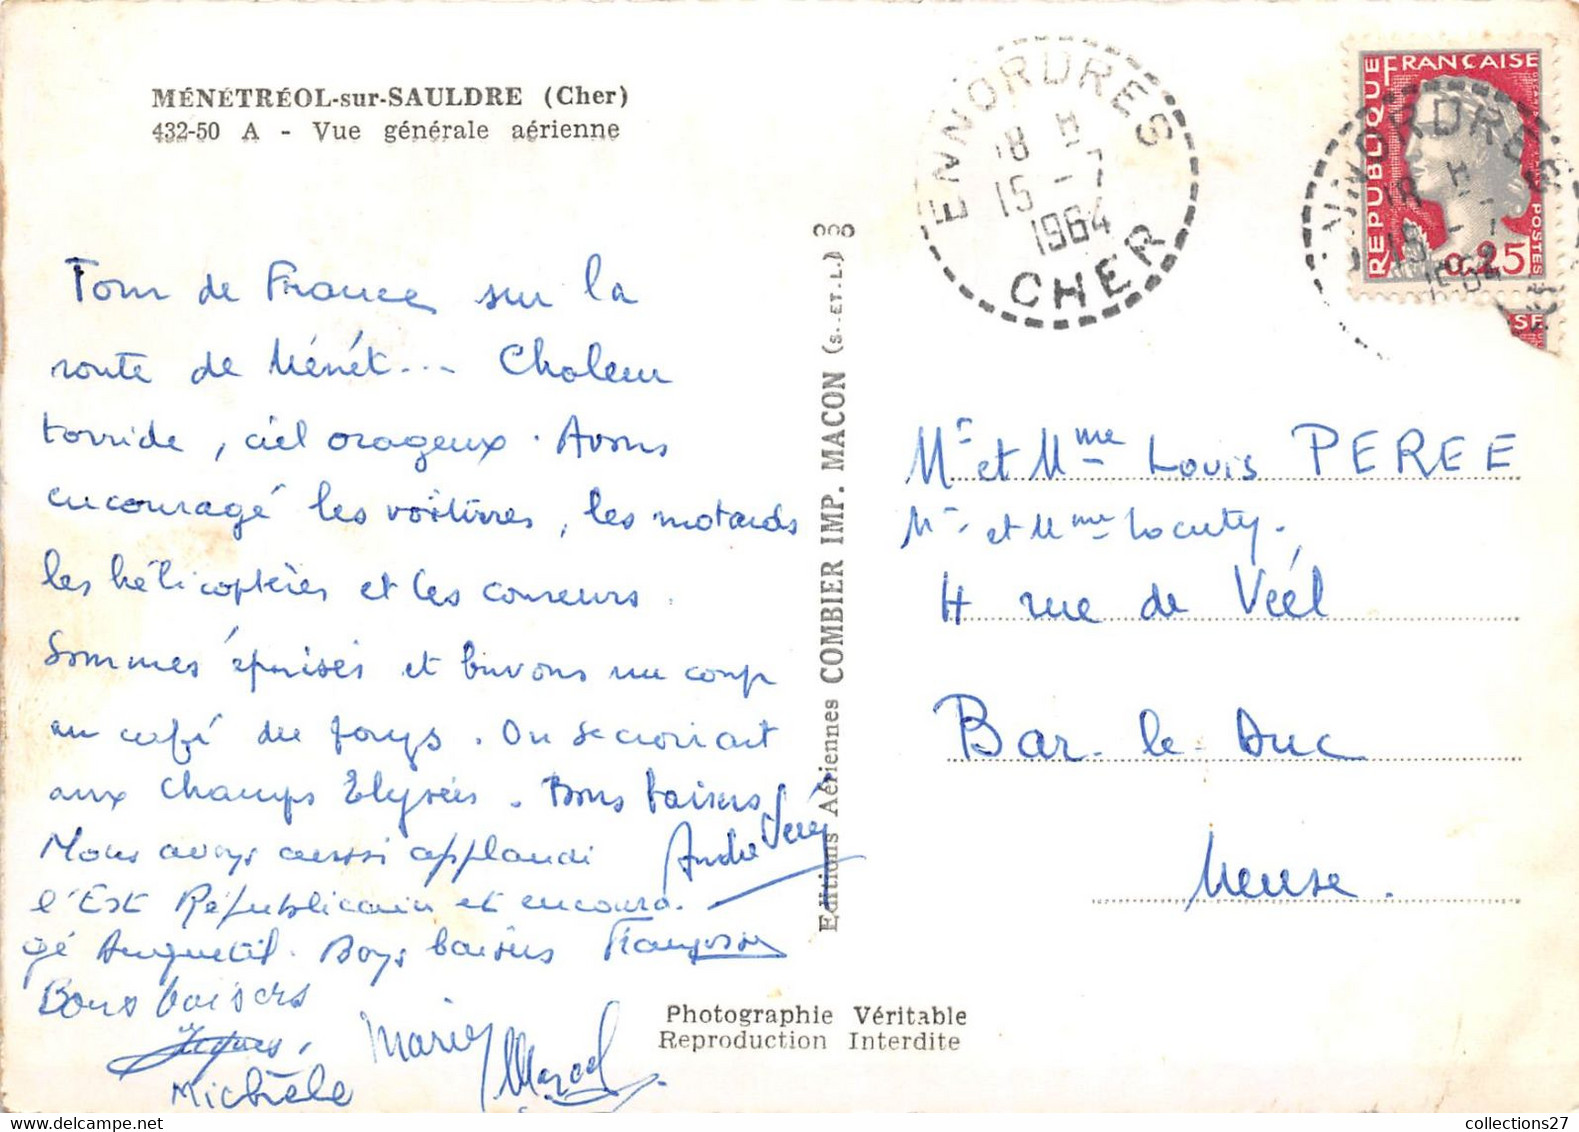 MÉNÉTRÉOL-sur-SAULDRE (Cher)
432-50 A - Vue générale aérienne
Tour de France sur la
route de Ménét... Chaleur
torride, ciel orageux. Avons
encouragé les voitures, les motards
les hélicoptères et les coureurs.
Sommes épuisés et buvons un coup
au café du pays. On se croirait
aux Champs Elysées. Bons baisers
André
Nous avons aussi applaudi
l'Est Républicain et encoura-
gé Anquetil. Bons baisers Françoise
Bons baisers
Jacques,
Michèle
Marie
Marcel
Editions Aériennes COMBIER IMP. MACON (S.-ET-L.)
Photographie Véritable
Reproduction Interdite
ENNORDRES
18 H
15 - 7
1964
CHER
REPUBLIQUE FRANÇAISE
POSTES
0,25
ENNORDRES
18 H
15 - 7
1964
Mr et Mme Louis PEREE
Mr et Mme Locuty.
4 rue de Véel
Bar-le-Duc
Meuse.
collections27